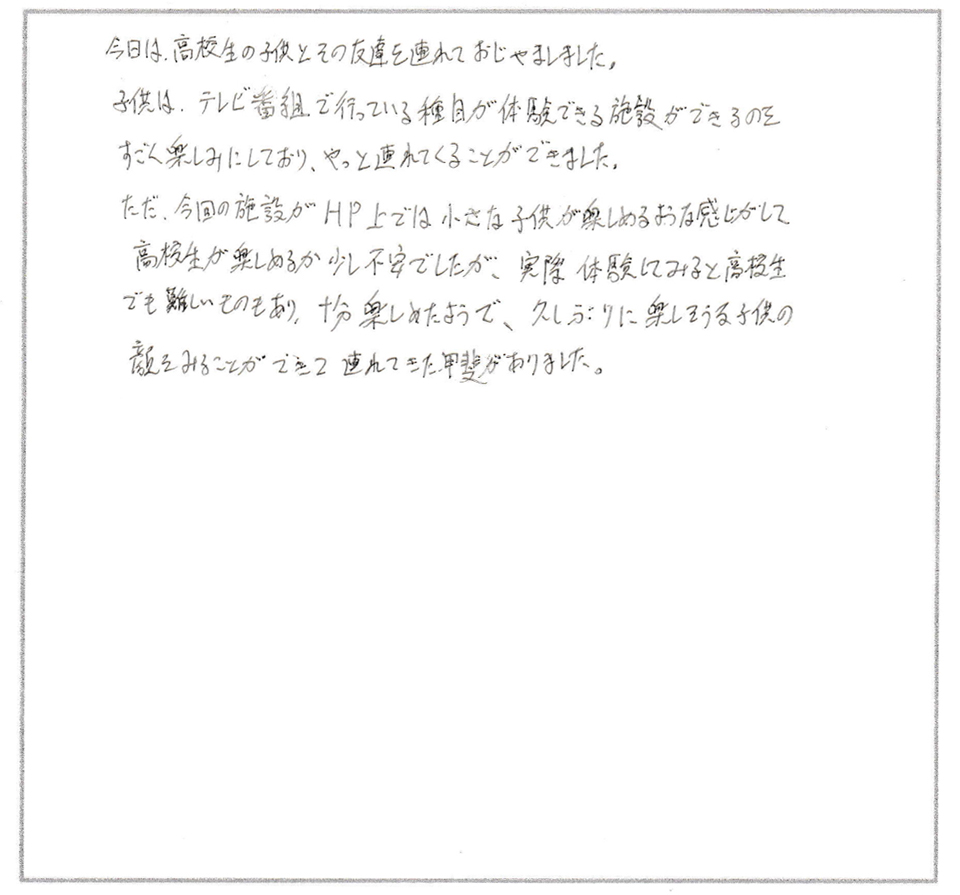 今日は、高校生の子供とその友達を連れておじゃましました。
子供は、テレビ番組で行っている種目が体験できる施設ができるのを
すごく楽しみにしており、やっと連れてくることができました。
ただ、今回の施設がHP上では小さな子供が楽しめるような感じがして
高校生が楽しめるか少し不安でしたが、実際体験してみると高校生
でも難しいものもあり、十分楽しめたようで、久しぶりに楽しそうな子供の
顔をみることができて連れてきた甲斐がありました。